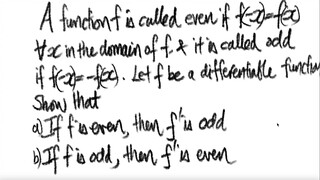 A function f is called even if f(-x)=f(x)
∀x in the domain of f. & it is called odd
if f(-x)=-f(x). Let f be a differentiable function
Show that
a) If f is even, then f' is odd
b) If f is odd, then f' is even